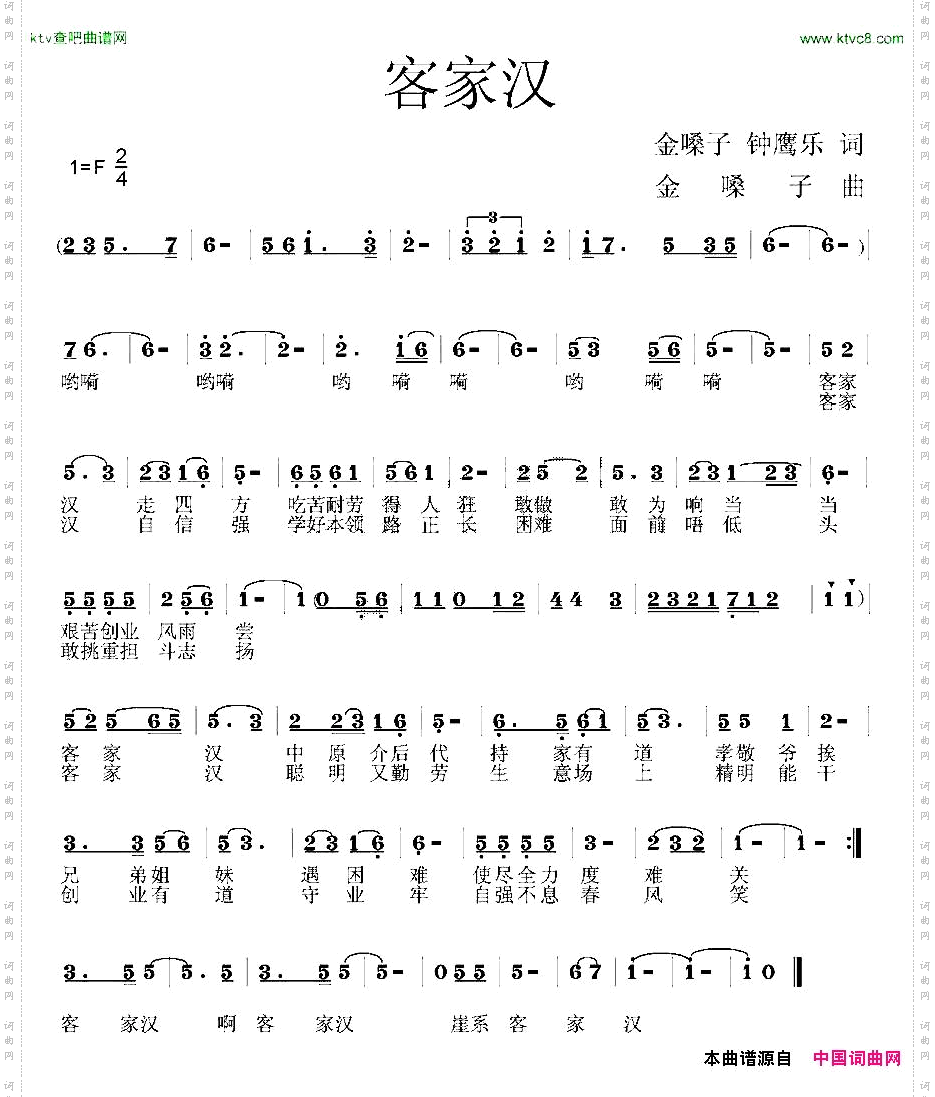 ktv查吧曲谱网 www.ktvc8.com
客家汉
金嗓子 钟鹰乐 词
1=F 2/4
金 嗓 子 曲
(235. 7 | 6- | 561. 3 | 2- | 3 2 1 2 | 17. 5 35 | 6- | 6- )
3
76. | 6- | 32. | 2- | 2. 16 | 6- | 6- | 53 56 | 5- | 5- | 52 |
哟嗬 哟嗬 哟 嗬 嗬 哟 嗬 嗬 客家
客家
5. 3 | 23 16 | 5- | 6561 | 561 | 2- | 25 2 | 5. 3 | 231 23 | 6- |
汉 走 四 方 吃苦耐劳 得 人 狂 敢做 敢 为 响 当 当
汉 自 信 强 学好本领 路 正 长 困难 面 前 唔 低 头
5555 | 2 56 | 1- | 1 (0 56 | 110 12 | 44 3 | 2321 712 | 1 1) |
艰苦创业 风雨 尝
敢挑重担 斗志 扬
525 65 | 5. 3 | 2 2316 | 5- | 6. 561 | 53. | 55 1 | 2- |
客 家 汉 中 原 介后 代 持 家有 道 孝敬 爷 挨
客 家 汉 聪 明 又勤 劳 生 意场 上 精明 能 干
3. 356 | 53. | 23 16 | 6- | 5555 | 3- | 232 | 1- | 1- :|
兄 弟姐 妹 遇 困 难 使尽全力 度 难 关
创 业有 道 守 业 牢 自强不息 春 风 笑
3. 55 | 5. 5 | 3. 55 | 5- | 055 | 5- | 67 | 1- | 1- | 10 ‖
客 家汉 啊 客 家汉 崖系 客 家 汉
本曲谱源自 中国词曲网